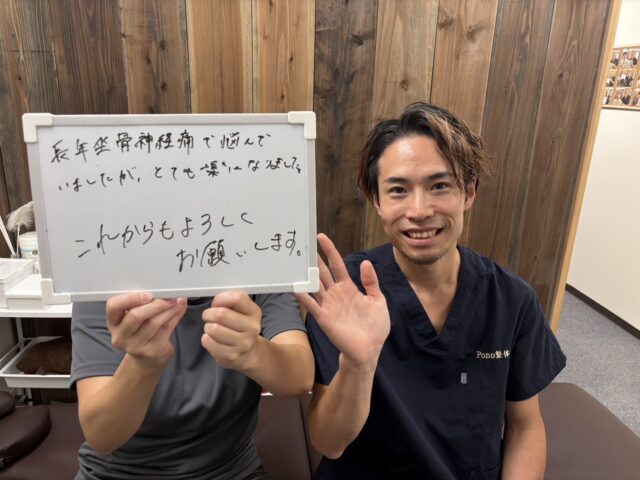 長年坐骨神経痛で悩んで
いましたが、とても楽になりました。
これからもよろしく
お願いします。
Pono整体